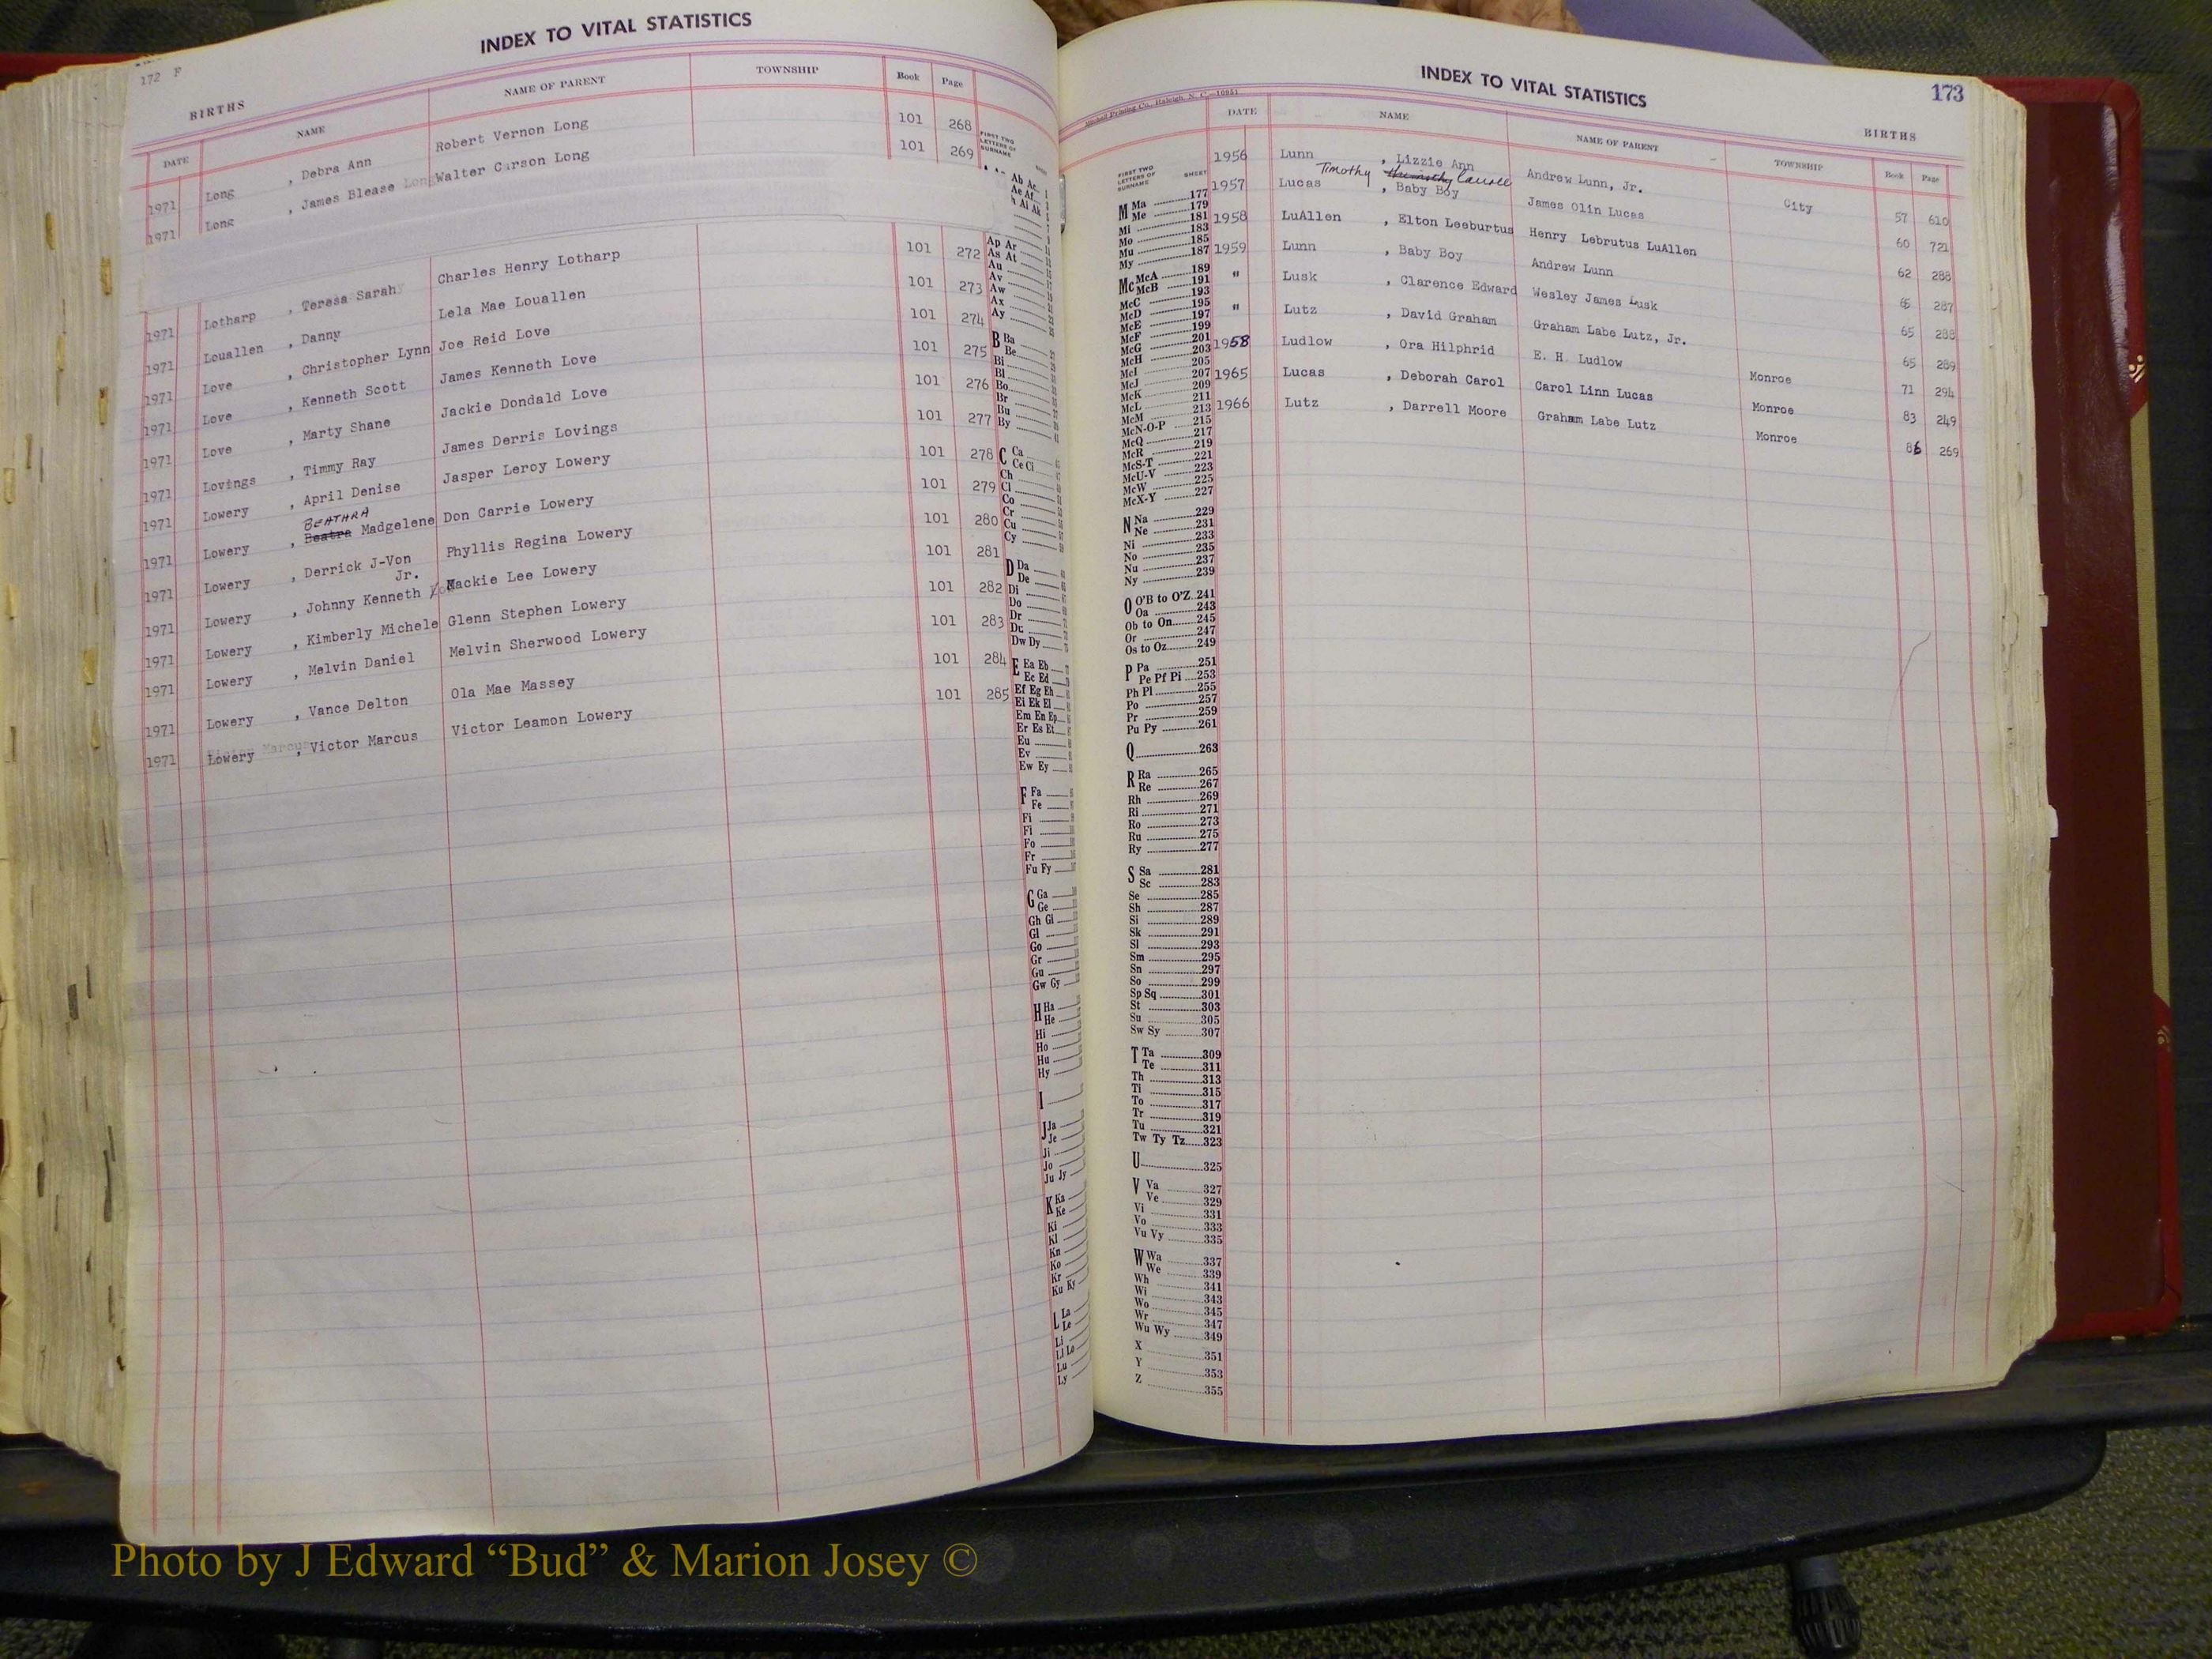 INDEX TO VITAL STATISTICS
172 F
BIRTHS
DATE NAME NAME OF PARENT TOWNSHIP Book Page
1971 Long , Debra Ann Robert Vernon Long 101 268
1971 Long , James Blease Long Walter Carson Long 101 269
1971 Lotharp , Teresa Sarah Charles Henry Lotharp 101 272
1971 Louallen , Danny Lela Mae Louallen 101 273
1971 Love , Christopher Lynn Joe Reid Love 101 274
1971 Love , Kenneth Scott James Kenneth Love 101 275
1971 Love , Marty Shane Jackie Dondald Love 101 276
1971 Lovings , Timmy Ray James Derris Lovings 101 277
1971 Lowery , April Denise Jasper Leroy Lowery 101 278
BEATHRA
1971 Lowery , Beatra Madgelene Don Carrie Lowery 101 279
1971 Lowery , Derrick J-Von Phyllis Regina Lowery 101 280
Jr.
1971 Lowery , Johnny Kenneth Mackie Lee Lowery 101 281
1971 Lowery , Kimberly Michele Glenn Stephen Lowery 101 282
1971 Lowery , Melvin Daniel Melvin Sherwood Lowery 101 283
1971 Lowery , Vance Delton Ola Mae Massey 101 284
1971 Lowery , Victor Marcus Victor Leamon Lowery 101 285
FIRST TWO LETTERS OF SURNAME
Ab Ac
Ae Af
Ai Ak
Ap Ar
As At
Au
Av
Aw
Ax
Ay
B Ba
Be
Bi
Bl
Bo
Br
Bu
By
C Ca
Ce Ci
Ch
Cl
Co
Cr
Cu
Cy
D Da
De
Di
Do
Dr
Du
Dw Dy
E Ea Eb
Ec Ed
Ef Eg Eh
Ei Ek El
Em En Ep
Er Es Et
Eu
Ev
Ew Ey
F Fa
Fe
Fi
Fl
Fo
Fr
Fu Fy
G Ga
Ge
Gh Gi
Gl
Go
Gr
Gu
Gw Gy
H Ha
He
Hi
Ho
Hu
Hy
I
J Ja
Je
Ji
Jo
Ju Jy
K Ka
Ke
Ki
Kl
Kn
Ko
Kr
Ku Ky
L La
Le
Li
Ll Lo
Lu
Ly
INDEX TO VITAL STATISTICS 173
Mitchell Printing Co., Raleigh, N. C.—10851
BIRTHS
DATE NAME NAME OF PARENT TOWNSHIP Book Page
1956 Lunn , Lizzie Ann Andrew Lunn, Jr. City 57 610
Timothy
1957 Lucas , Baby Boy James Olin Lucas 60 721
1958 LuAllen , Elton Leeburtus Henry Lebrutus LuAllen 62 288
1959 Lunn , Baby Boy Andrew Lunn 65 287
" Lusk , Clarence Edward Wesley James Lusk 65 288
" Lutz , David Graham Graham Labe Lutz, Jr. 65 289
1958 Ludlow , Ora Hilphrid E. H. Ludlow Monroe 71 294
1965 Lucas , Deborah Carol Carol Linn Lucas Monroe 83 249
1966 Lutz , Darrell Moore Graham Labe Lutz Monroe 86 269
FIRST TWO LETTERS OF SURNAME SHEET
M Ma 177
Me 179
Mi 181
Mo 183
Mu 185
My 187
Mc McA 189
McB 191
McC 193
McD 195
McE 197
McF 199
McG 201
McH 203
McI 205
McJ 207
McK 209
McL 211
McM 213
McN-O-P 215
McQ 217
McR 219
McS-T 221
McU-V 223
McW 225
McX-Y 227
N Na 229
Ne 231
Ni 233
No 235
Nu 237
Ny 239
O O'B to O'Z 241
Oa 243
Ob to On 245
Or 247
Os to Oz 249
P Pa 251
Pe Pf Pi 253
Ph Pl 255
Po 257
Pr 259
Pu Py 261
Q 263
R Ra 265
Re 267
Rh 269
Ri 271
Ro 273
Ru 275
Ry 277
S Sa 281
Sc 283
Se 285
Sh 287
Si 289
Sk 291
Sl 293
Sm 295
Sn 297
So 299
Sp Sq 301
St 303
Su 305
Sw Sy 307
T Ta 309
Te 311
Th 313
Ti 315
To 317
Tr 319
Tu 321
Tw Ty Tz 323
U 325
V Va 327
Ve 329
Vi 331
Vo 333
Vu Vy 335
W Wa 337
We 339
Wh 341
Wi 343
Wo 345
Wr 347
Wu Wy 349
X 351
Y 353
Z 355
Photo by J Edward “Bud” & Marion Josey ©